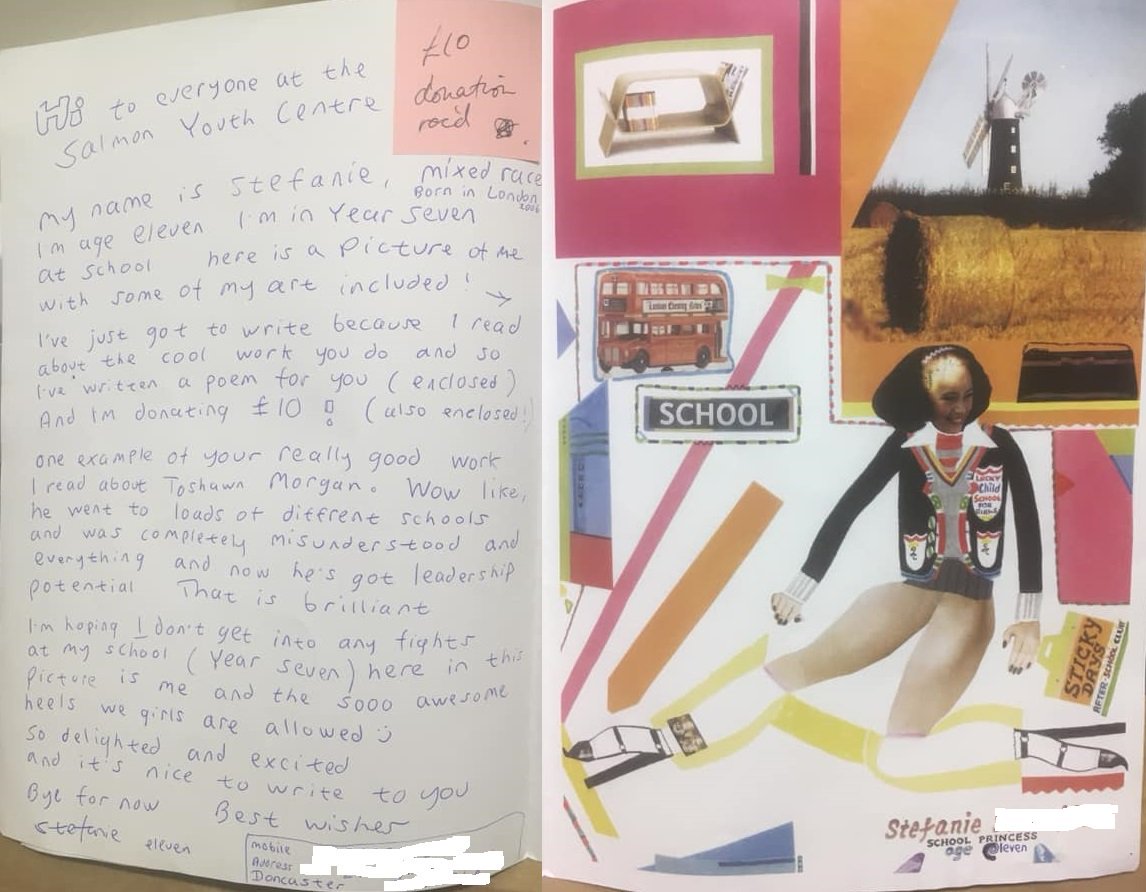 Hi to everyone at the
Salmon Youth Centre
£10
donation
rec'd
My name is Stefanie, mixed race
Born in London
2006
I'm age eleven I'm in Year seven
at school here is a Picture of me
with some of my art included! →
I've just got to write because I read
about the cool work you do and so
I've written a poem for you (enclosed)
And I'm donating £10 ! (also enclosed!)
one example of your really good work
I read about Toshawn Morgan. Wow like,
he went to loads of different schools
and was completely misunderstood and
everything and now he's got leadership
potential That is brilliant
I'm hoping I don't get into any fights
at my school (Year seven) here in this
Picture is me and the sooo awesome
heels we girls are allowed :)
so delighted and excited
and it's nice to write to you
Bye for now Best wishes
Stefanie eleven
mobile
Address
Doncaster
London Evening News
SCHOOL
LUCKY
Child
SCHOOL
FOR
GIRLS
STICKY
DAYS
AFTER-SCHOOL CLUB
Stefanie
SCHOOL PRINCESS
age eleven